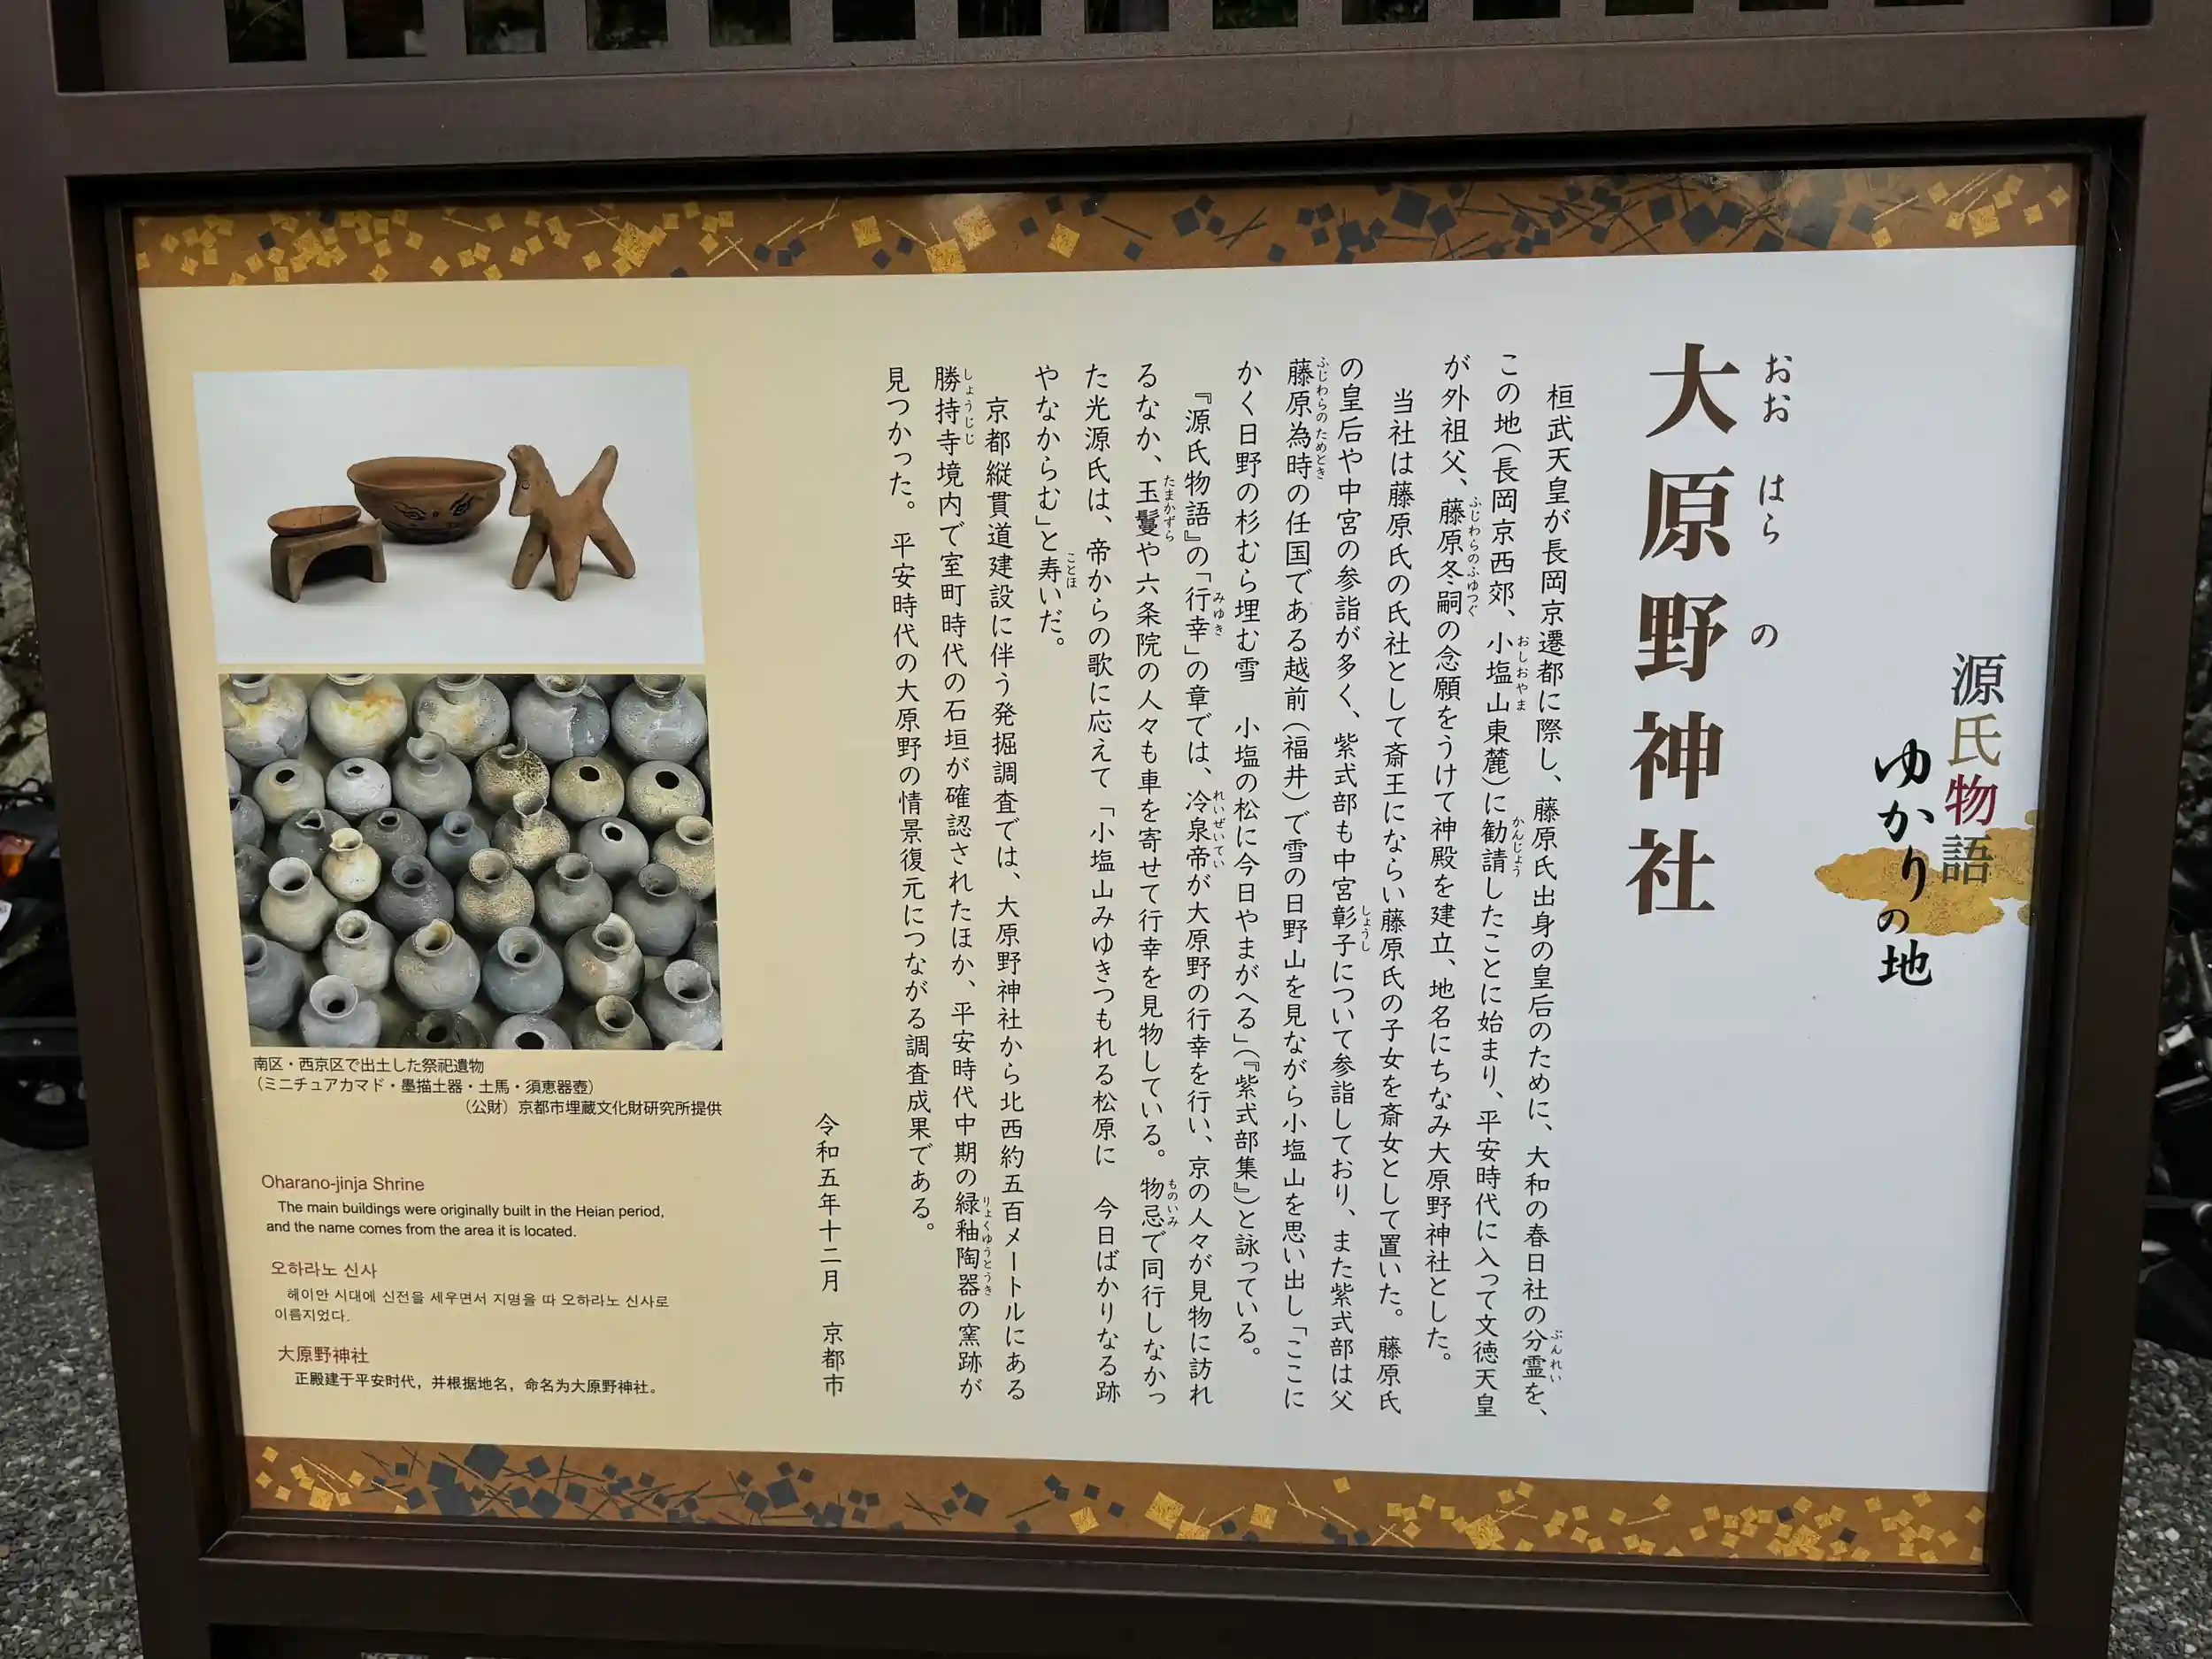 源氏物語
ゆかりの地
おおはらの
大原野神社
桓武天皇が長岡京遷都に際し、藤原氏出身の皇后のために、大和の春日社の分霊を、
この地(長岡京西郊、小塩山東麓)に勧請したことに始まり、平安時代に入って文徳天皇
が外祖父、藤原冬嗣の念願をうけて神殿を建立、地名にちなみ大原野神社とした。
当社は藤原氏の氏社として斎王にならい藤原氏の子女を斎女として置いた。藤原氏
の皇后や中宮の参詣が多く、紫式部も中宮彰子について参詣しており、また紫式部は父
藤原為時の任国である越前(福井)で雪の日野山を見ながら小塩山を思い出し「ここに
かく日野の杉むら埋む雪　小塩の松に今日やまがへる」(『紫式部集』)と詠っている。
『源氏物語』の「行幸」の章では、冷泉帝が大原野の行幸を行い、京の人々が見物に訪れ
るなか、玉鬘や六条院の人々も車を寄せて行幸を見物している。物忌で同行しなかっ
た光源氏は、帝からの歌に応えて「小塩山みゆきつもれる松原に　今日ばかりなる跡
やなからむ」と寿いだ。
京都縦貫道建設に伴う発掘調査では、大原野神社から北西約五百メートルにある
勝持寺境内で室町時代の石垣が確認されたほか、平安時代中期の緑釉陶器の窯跡が
見つかった。平安時代の大原野の情景復元につながる調査成果である。
令和五年十二月　京都市
南区・西京区で出土した祭祀遺物
(ミニチュアカマド・墨描土器・土馬・須恵器壺)
(公財)京都市埋蔵文化財研究所提供
Oharano-jinja Shrine
The main buildings were originally built in the Heian period,
and the name comes from the area it is located.
오하라노 신사
헤이안 시대에 신전을 세우면서 지명을 따 오하라노 신사로
이름지었다.
大原野神社
正殿建于平安时代，并根据地名，命名为大原野神社。